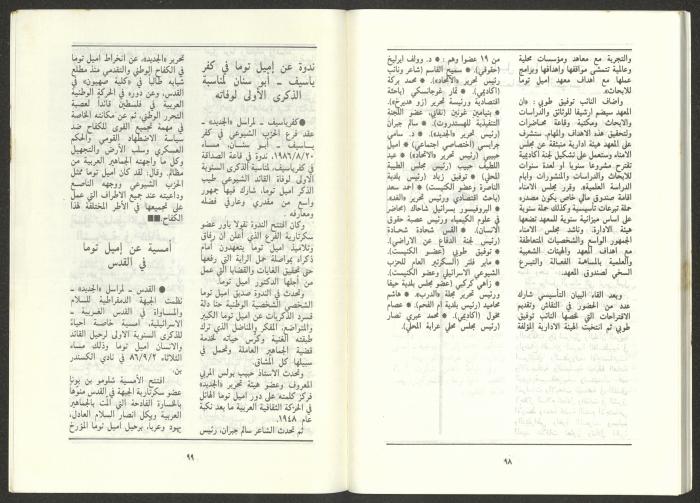 والتجربة مع معاهد ومؤسسات محلية
وعالمية تتمشى مواقفها واهدافها وبرامج
عملها مع اهداف معهد اميل توما
للابحاث».
واضاف النائب توفيق طوبي: «ان
المعهد سيضم ارشيفا للوثائق والدراسات
والابحاث ومكتبة وقاعة محاضرات
ولتحقيق هذه الاهداف والمهام، ستشرف
على المعهد هيئة ادارية منبثقة عن مجلس
الامناء وستعمل على تشكيل لجنة اكاديمية
تقترح مشروعا سنويا او لعدة سنوات
للابحاث والدراسات والمنشورات وايام
الدراسة العلمية». وقرر مجلس الامناء
اقامة صندوق مالي خاص يكون مصدره
حملة تبرعات تأسيسية وكذلك حملة سنوية
على اساس ميزانية سنوية للمعهد تضعها
هيئة الادارة. وناشد مجلس الامناء
الجمهور الواسع والشخصيات المتعاطفة
مع اهداف المعهد والهيئات الشعبية
والعلمية بالمساهمة الفعالة والتبرع
السخي لصندوق المعهد.
وبعد القاء البيان التأسيسي شارك
عدد من الحضور في النقاش وتقديم
الاقتراحات التي لخصها النائب توفيق
طوبي ثم انتخبت الهيئة الادارية المؤلفة
من ١٩ عضوا وهم: * د. وولف ايرليخ
(حقوقي). * سميح القاسم (شاعر ونائب
رئيس تحرير «الاتحاد»). * محمد بركة
(اكاديمي). * تمار غوجانسكي (باحثة
اقتصادية ورئيسة تحرير «زو هديرخ»).
* بنيامين غونين (نقابي، عضو اللجنة
التنفيذية للهستدروت). * سالم جبران
(رئيس تحرير «الجديد»). * د. سامي
جرايسي (اختصاصي اجتماعي) * اميل
حبيبي (رئيس تحرير «الاتحاد») * عبد
اللطيف حبيب (رئيس مجلس الطيبة
المحلي) * توفيق زياد (رئيس بلدية
الناصرة وعضو الكنيست) * احمد سعد
(باحث اقتصادي ورئيس تحرير «الغد»).
* البروفيسور يسرائيل شاحاك (محاضر
في علوم الكيمياء ورئيس عصبة حقوق
الانسان). * القس شحادة شحادة
(رئيس لجنة الدفاع عن الاراضي).
* توفيق طوبي (عضو الكنيست).
* ماير فلنر (السكرتير العام للحزب
الشيوعي الاسرائيلي وعضو الكنيست).
* زاهي كركبي (عضو مجلس بلدية حيفا
ورئيس تحرير مجلة «الدرب». * هاشم
محاميد (رئيس بلدية ام الفحم). * عصام
مخول (اكاديمي). * محمد عبري نصار
(رئيس مجلس محلي عرابة المحلي).
٩٨
ندوة عن إميل توما في كفر
ياسيف ـ أبو سنان لمناسبة
الذكرى الأولى لوفاته
● كفرياسيف ـ لمراسل «الجديد» ـ
عقد فرع الحزب الشيوعي في كفر
ياسيف ـ ابو سنان، مساء
١٩٨٦/٨/٢٠، ندوة في قاعة الصداقة
في كفرياسيف، لمناسبة الذكرى السنوية
الاولى لوفاة القائد الشيوعي طيب
الذكر اميل توما، شارك فيها جمهور
واسع من مقدري وعارفي فضله
ومعارفه.
وكان افتتح الندوة نقولا باور عضو
سكرتارية الفرع الذي أعلن ان رفاق
وتلاميذ اميل توما يتعهدون امام
ذكراه بمواصلة حمل الراية التي رفعها
حتى تحقيق الغايات والقضايا التي عمل
من أجلها الدكتور اميل توما.
وتحدث في الندوة صديق اميل توما
الشخصي الشخصية الوطنية حنا دلة
فسرد الذكريات عن اميل توما الكبير
والمتواضع، المفكر والمناضل الذي ترك
طبقته الغنية وكرس حياته لخدمة
قضية الجماهير العاملة وتحمل في
سبيلها كل المشاق.
وتحدث الاستاذ حبيب بولس المربي
المعروف وعضو هيئة تحرير «الجديد»
فركز كلمته على دور اميل توما الهائل
في الحركة الثقافية العربية ما بعد نكبة
عام ١٩٤٨.
ثم تحدث الشاعر سالم جبران، رئيس
تحرير «الجديد»، عن انخراط اميل توما
في الكفاح الوطني والتقدمي منذ مطلع
شبابه طالبا في «كلية صهيون» في
القدس، وعن دوره في الحركة الوطنية
العربية في فلسطين قائدا لعصبة
التحرر الوطني، ثم عن مكانته الخاصة
في مهمة تجميع القوى للكفاح ضد
سياسة الاضطهاد القومي والحكم
العسكري وسلب الارض والتجهيل
وكل ما واجهته الجماهير العربية من
مظالم. وقال: لقد كان اميل توما ممثل
الحزب الشيوعي ووجهه الناصع
وداعيته عند جميع الاطراف التي عمل
على تجميعها في الأطر المختلفة لهذا
الكفاح.■■
أمسية عن إميل توما
في القدس
● القدس ـ لمراسل «الجديد» ـ
نظمت الجبهة الدمقراطية للسلام
والمساواة في القدس الغربية ـ
الاسرائيلية، امسية خاصة احياء
للذكرى السنوية الاولى لرحيل القائد
والانسان اميل توما وذلك مساء
الثلاثاء ٨٦/٩/٢ في نادي الكسندر
بن.
افتتح الأمسية شلومو بن يونا
عضو سكرتارية الجبهة في القدس منوها
بالخسارة الفادحة التي ألمت بالجماهير
العربية وبكل انصار السلام العادل،
يهود وعربا، برحيل اميل توما المؤرخ
٩٩